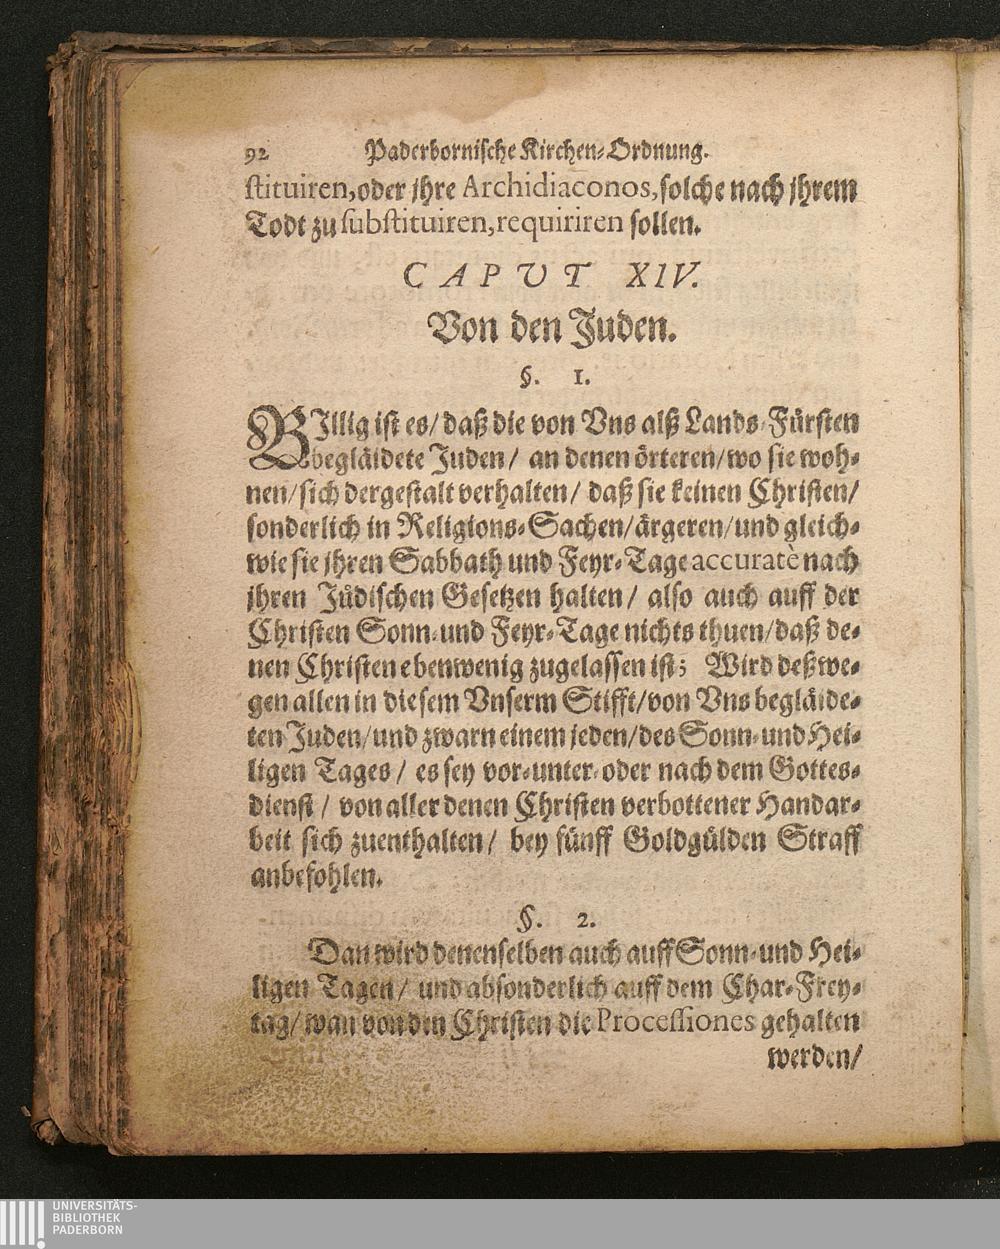 92 Paderbornische Kirchen-Ordnung.
stituiren, oder jhre Archidiaconos, solche nach jhrem
Todt zu substituiren, requiriren sollen.
CAPUT XIV.
Von den Juden.
§. 1.
BIllig ist es/ daß die von Vns alß Lands-Fürsten
begläidete Juden/ an denen örteren/ wo sie woh-
nen/ sich dergestalt verhalten/ daß sie keinen Christen/
sonderlich in Religions-Sachen/ ärgeren/ und gleich-
wie sie jhren Sabbath und Feyr-Tage accuratè nach
jhren Jüdischen Gesetzen halten/ also auch auff der
Christen Sonn- und Feyr-Tage nichts thuen/ daß de-
nen Christen ebenwenig zugelassen ist; Wird deßwe-
gen allen in diesem Vnserm Stifft/ von Vns begläide-
ten Juden/ und zwarn einem jeden/ des Sonn- und Hei-
ligen Tages/ es sey vor- unter- oder nach dem Gottes-
dienst/ von aller denen Christen verbottener Handar-
beit sich zuenthalten/ bey fünff Goldgülden Straff
anbefohlen.
§. 2.
Dan wird denenselben auch auff Sonn- und Hei-
ligen Tagen/ und absonderlich auff dem Char-Frey-
tag/ wan von den Christen die Processiones gehalten
werden/
UNIVERSITÄTS-
BIBLIOTHEK
PADERBORN